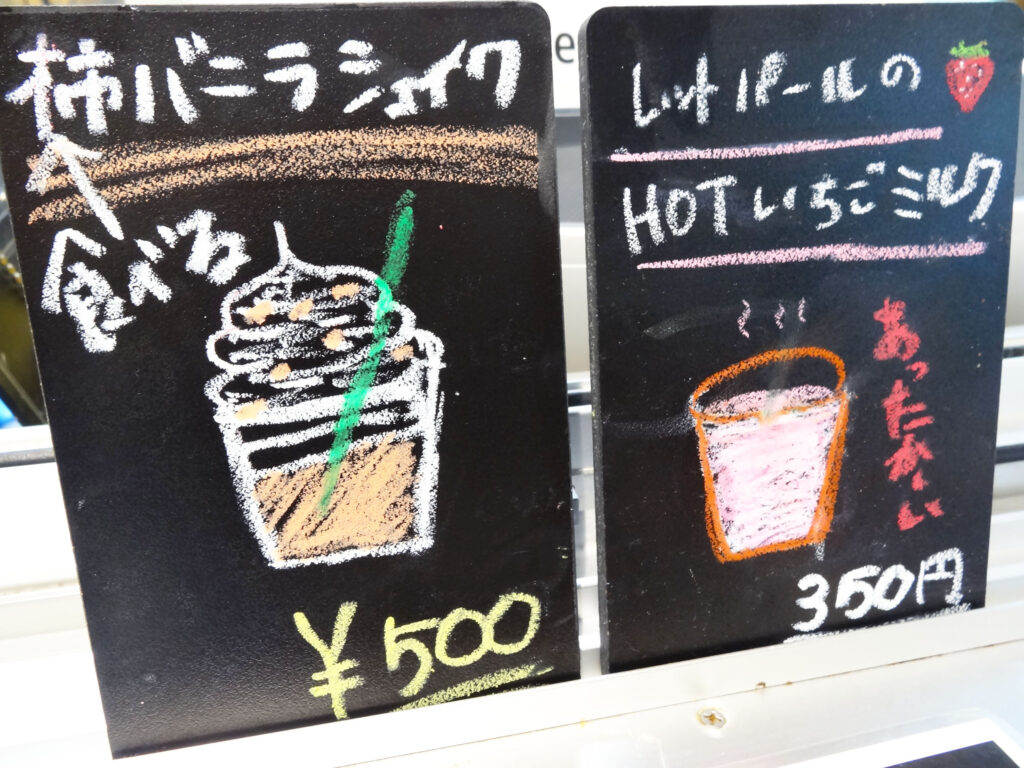 柿バニラシェイク
食べる
¥500
レッドパールの
HOTいちごミルク
あったかい
350円
e